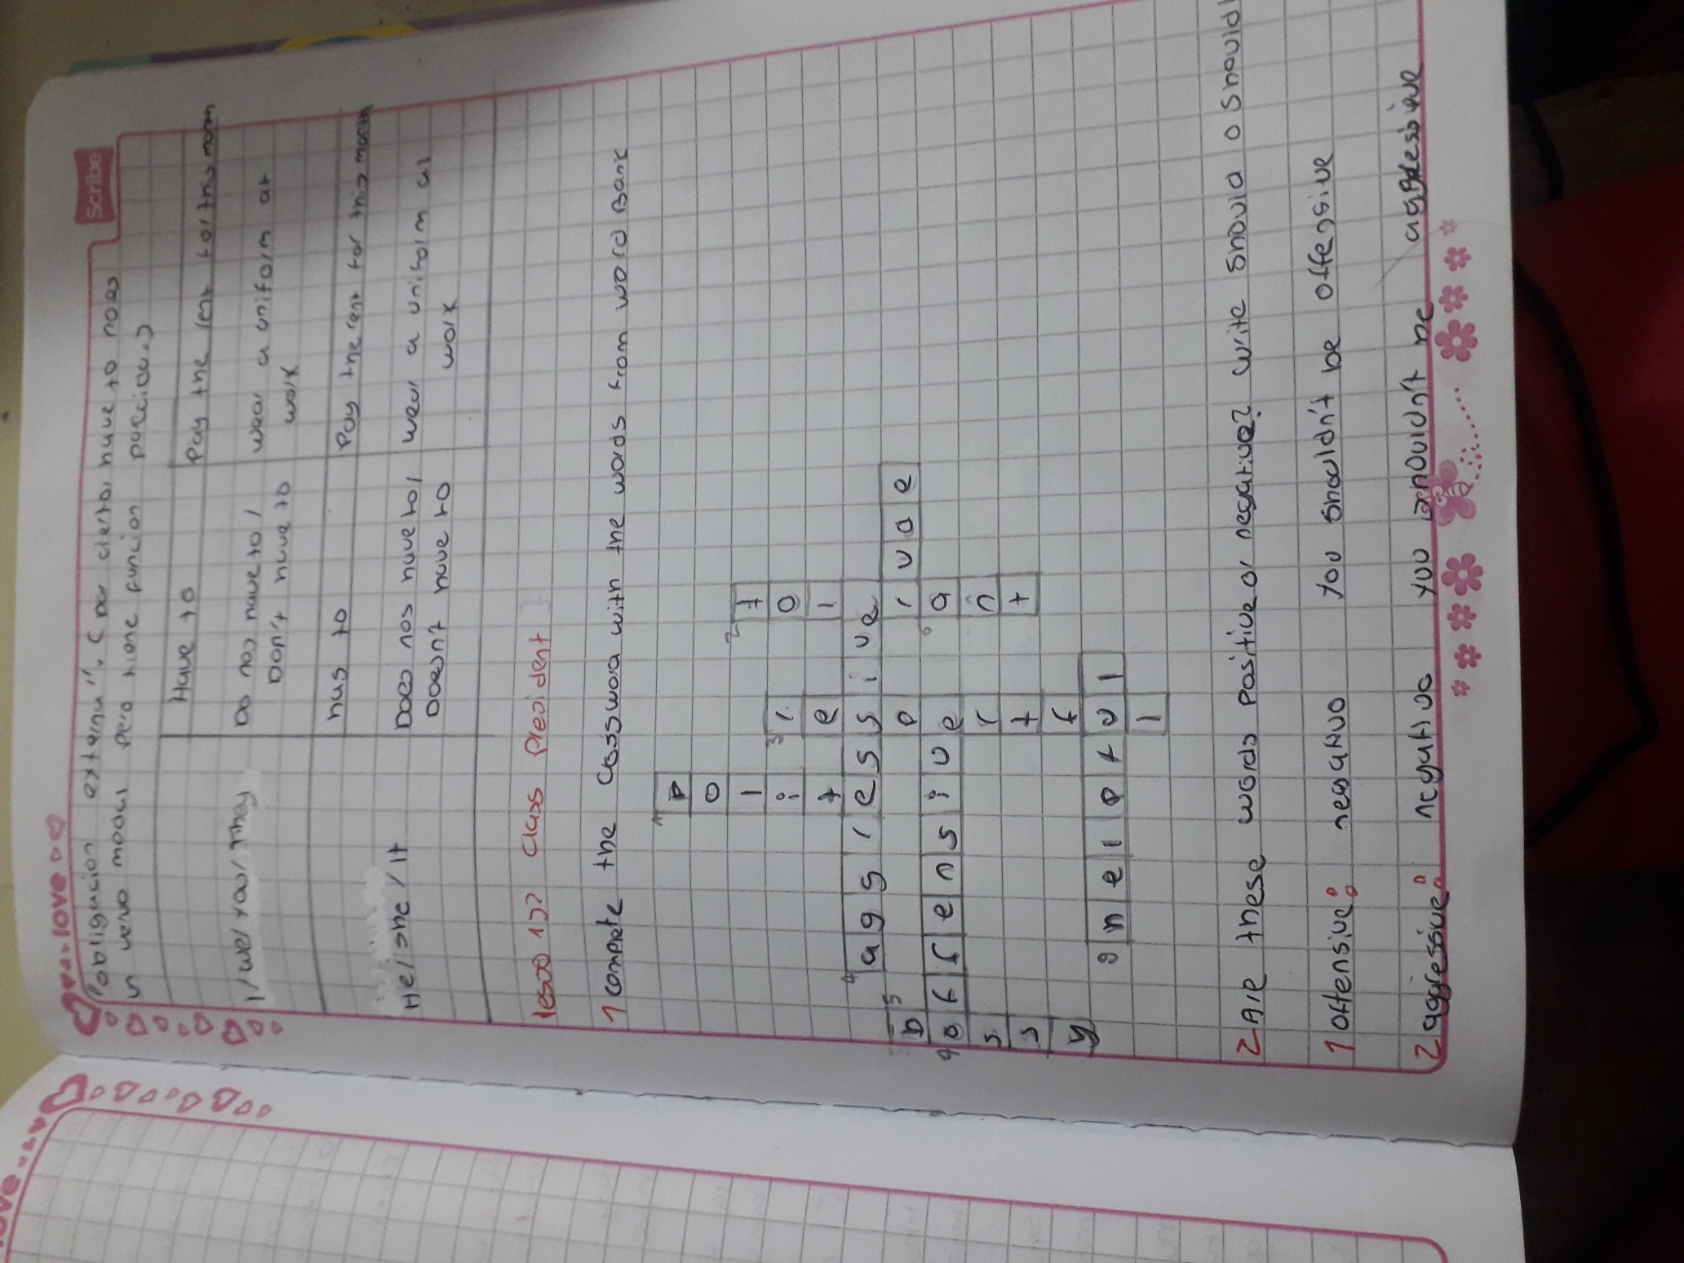 love
Scribe
"obligacion externa". (nor cierto) have to no es
un verbo modal pero tiene funcion parecida.)
Have to
Pay the rent for this month
I/we/you/they
Do nos have to/
Don't have to
wear a uniform at
work
has to
Pay the rent for this month
He/she/It
Does nos have to/
Doesn't have to
wear a uniform at
work
lesso 1)? class president
1 complete the cossword with the words from word Bank
1 polit
2 tolrant
3 respertful
4 aggressive
5 bossy
6 rude
9 offensive
8 helpful
2 Are these words positive or negative? write should o should
1 offensive: negativo you shouldn't be offensive
2 aggressive: negativo you shouldn't be aggressive